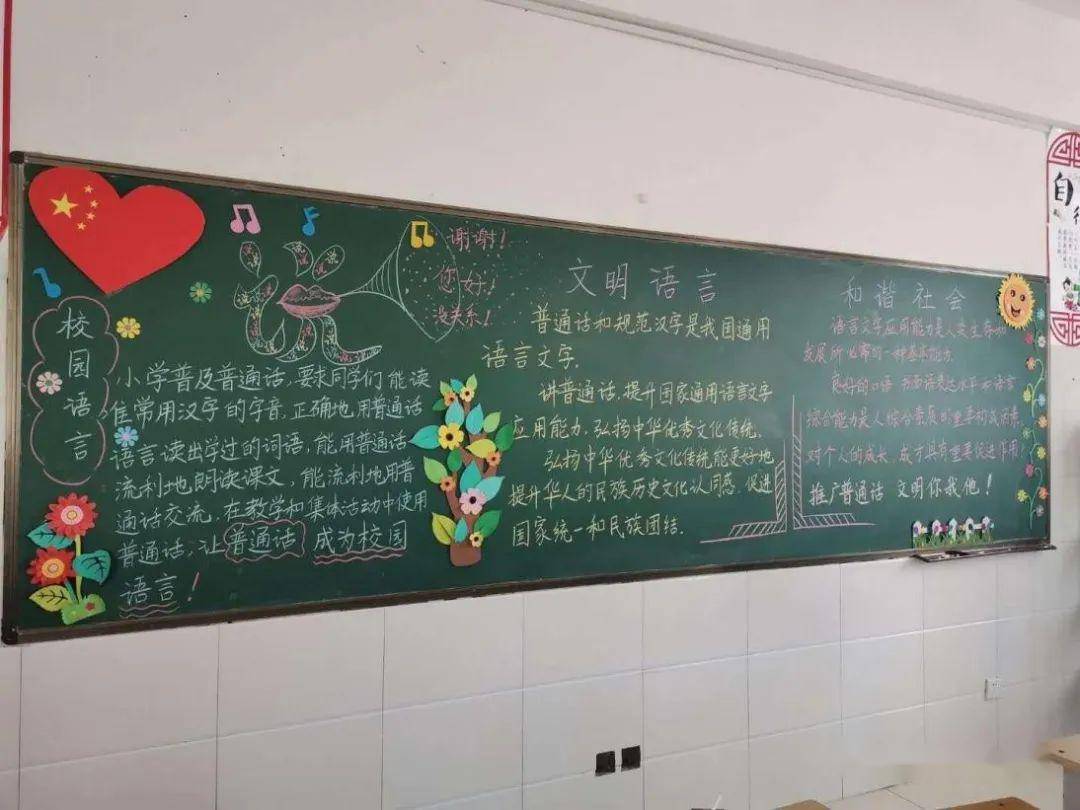 校园语言
谢谢！
你好！
没关系！
小学普及普通话，要求同学们能读
准常用汉字的字音，正确地用普通话
语言读出学过的词语，能用普通话
流利地朗读课文，能流利地用普
通话交流，在教学和集体活动中使用
普通话，让普通话成为校园
语言！
文明语言
普通话和规范汉字是我国通用
语言文字.
讲普通话，提升国家通用语言文字
应用能力，弘扬中华优秀文化传统.
弘扬中华优秀文化传统能更好地
提升华人的民族历史文化认同感，促进
国家统一和民族团结.
和谐社会
语言文字应用能力是人类生存和
发展所必需的一种基本能力.
良好的口语、书面语表达水平和语言
综合能力是人综合素质的重要构成因素
对个人的成长、成才具有重要促进作用，
推广普通话 文明你我他！
自